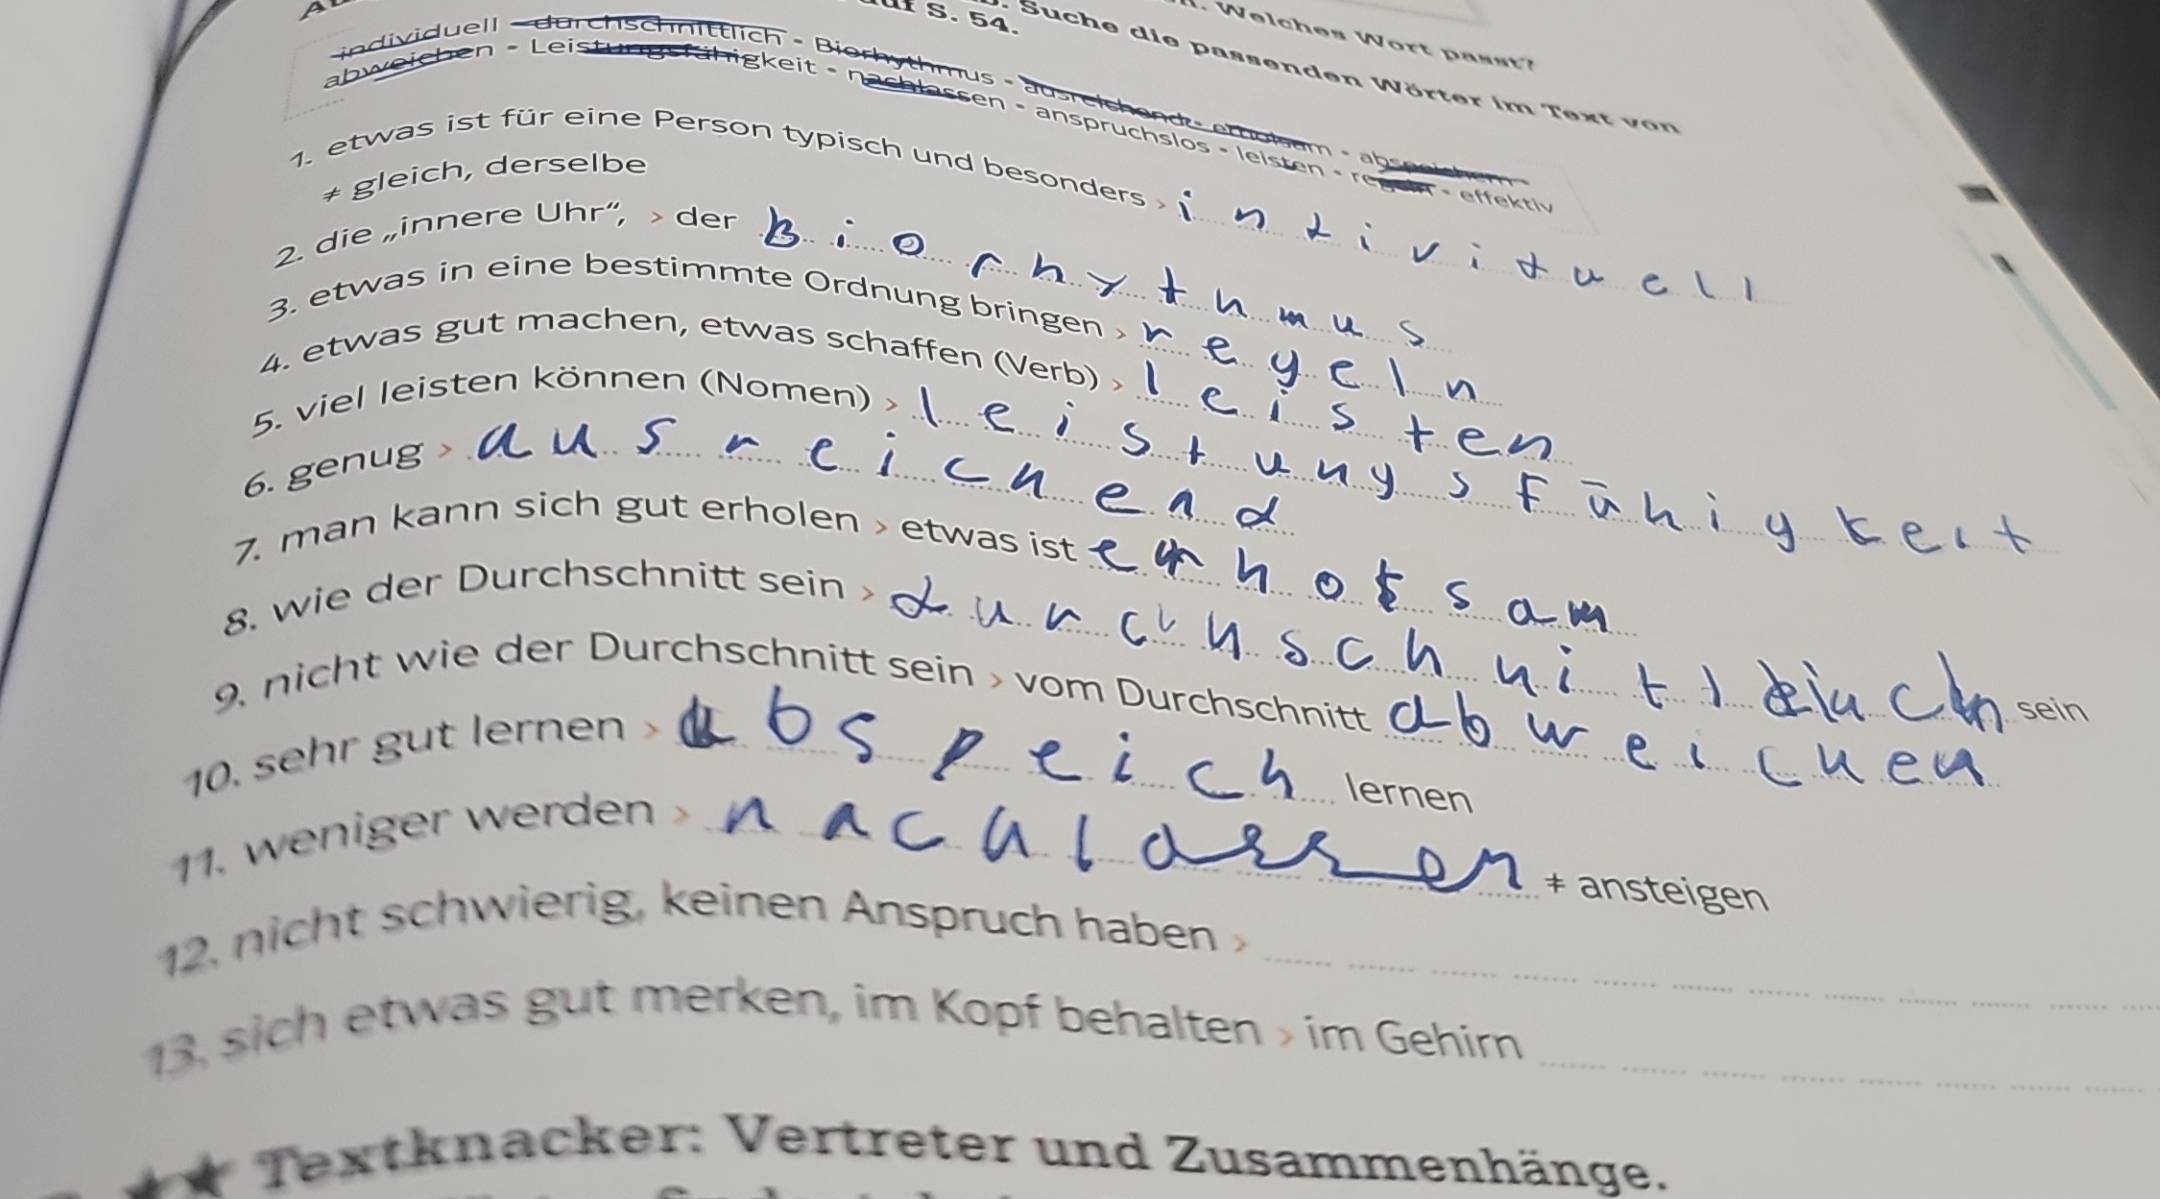 n. Welches Wort passt?
Suche die passenden Wörter im Text von
auf S. 54.
individuell - durchschnittlich - Biorhythmus - ausreichend - erholsam - abspeichern -
abweichen - Leistungsfähigkeit - nachlassen - anspruchslos - leisten - regeln - effektiv
1. etwas ist für eine Person typisch und besonders > individuell
≠ gleich, derselbe
2. die „innere Uhr“, > der Biorhythmus
3. etwas in eine bestimmte Ordnung bringen > regeln
4. etwas gut machen, etwas schaffen (Verb) > leisten
5. viel leisten können (Nomen) > leistungsfähigkeit
6. genug > ausreichend
7. man kann sich gut erholen > etwas ist erholsam
8. wie der Durchschnitt sein > sein
9. nicht wie der Durchschnitt sein > vom Durchschnitt abweichen
10. sehr gut lernen > abspeich lernen
11. weniger werden > nachlassen ≠ ansteigen
12. nicht schwierig, keinen Anspruch haben >
13. sich etwas gut merken, im Kopf behalten > im Gehirn
Textknacker: Vertreter und Zusammenhänge.